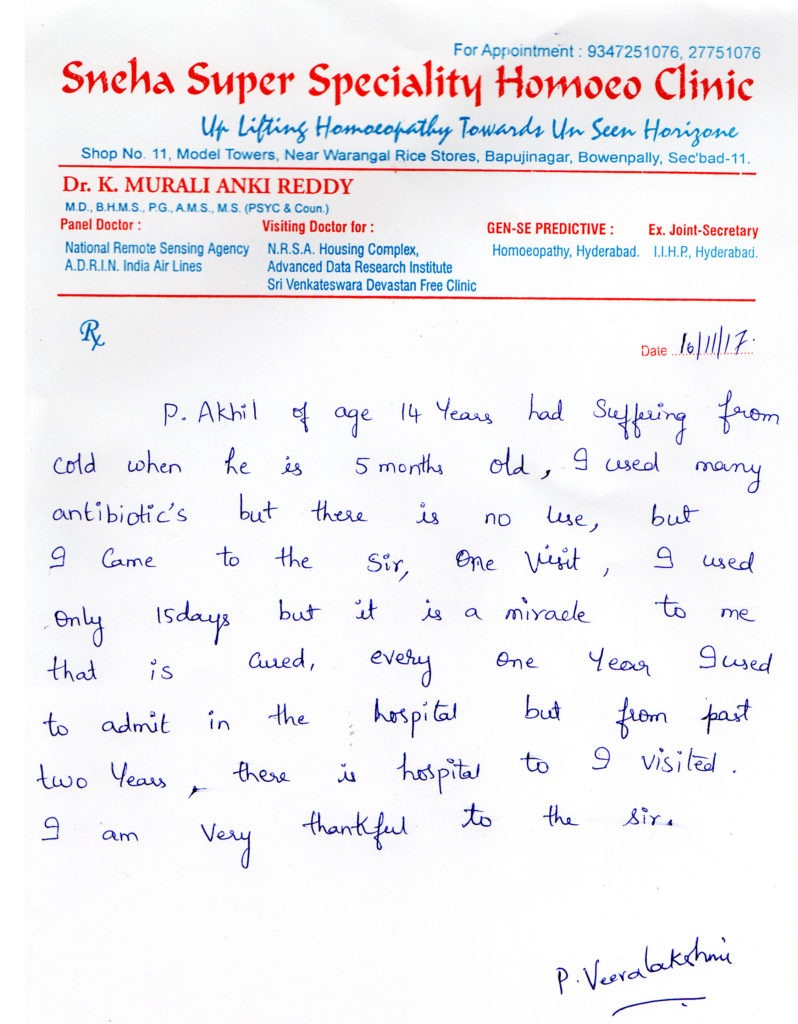 For Appointment : 9347251076, 27751076
Sneha Super Speciality Homoeo Clinic
Up Lifting Homoeopathy Towards Un Seen Horizone
Shop No. 11, Model Towers, Near Warangal Rice Stores, Bapujinagar, Bowenpally, Sec'bad-11.
Dr. K. MURALI ANKI REDDY
M.D., B.H.M.S., P.G., A.M.S., M.S. (PSYC & Coun.)
Panel Doctor : Visiting Doctor for : GEN-SE PREDICTIVE : Ex. Joint-Secretary
National Remote Sensing Agency N.R.S.A. Housing Complex, Homoeopathy, Hyderabad. I.I.H.P., Hyderabad.
A.D.R.I.N. India Air Lines Advanced Data Research Institute
Sri Venkateswara Devastan Free Clinic
Rx
Date 16/11/17.
P. Akhil of age 14 Years had Suffering from
cold when he is 5 months old, I used many
antibiotic's but there is no use, but
I Came to the Sir, One Visit, I used
only 15days but it is a miracle to me
that is Cured, every one Year I used
to admit in the hospital but from past
two Years, there is hospital to I visited.
I am Very thankful to the sir.
P. Veeralakshmi